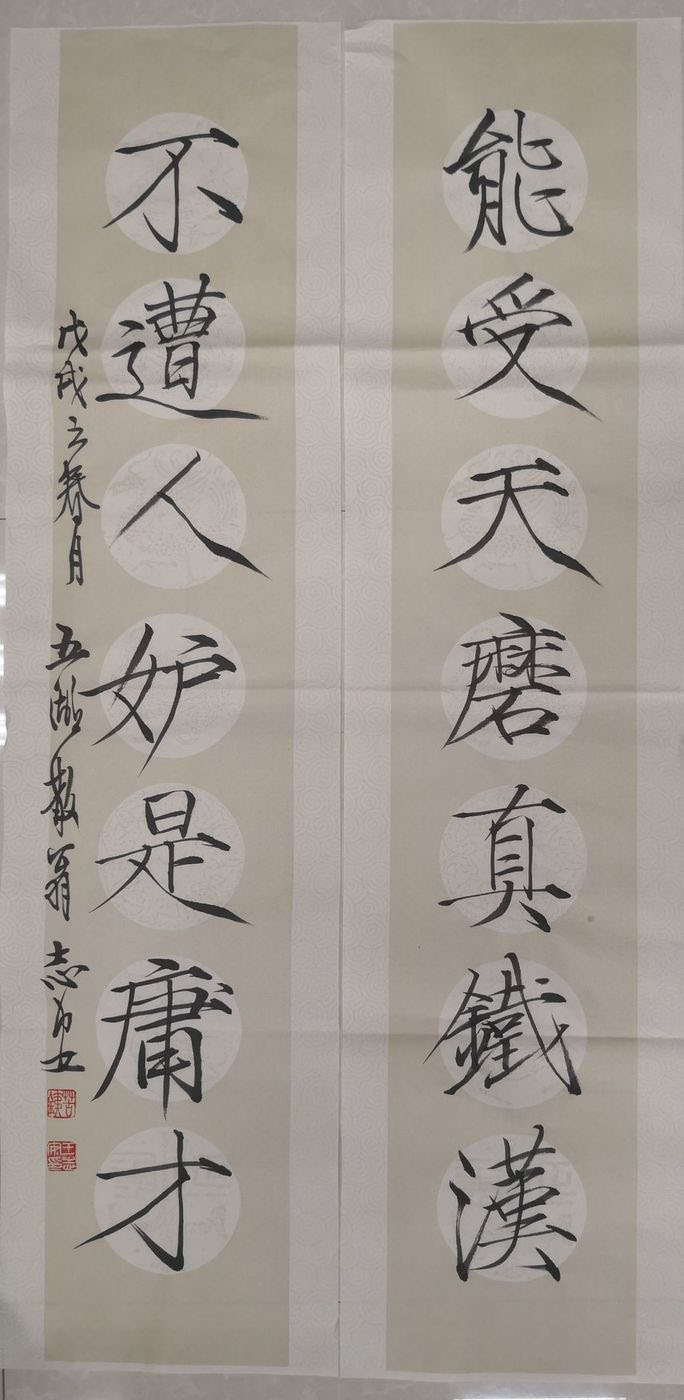 能受天磨真鐵漢
不遭人妒是庸才
戊戌之春月 五湖散翁 志